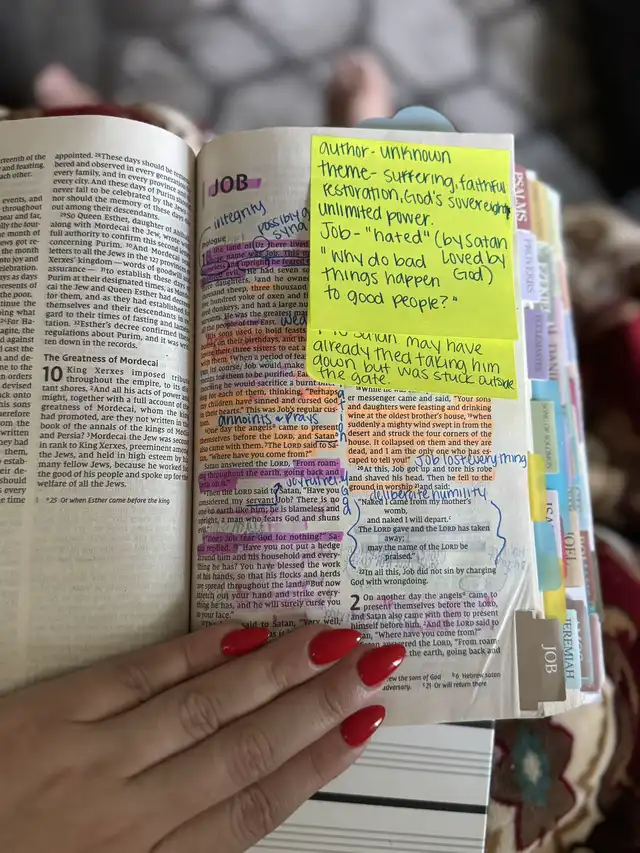 rteenth of the
and feasting.
ach other.
events, and
throughout
ear and far,
ly the four-
the month
ews got re-
the month
into joy and
elebration.
ays as days
presents of
the poor.
tinue the
ing what
For Ha-
agite, the
against
ast the
and de-
to the
orders
devised
ack onto
his sons
herefore
from the
written
they had
the
estab-
their de-
should
every
e time
appointed. 28These days should be remem
bered and observed in every generation
every family, and in every province and
every city. And these days of Purim sho
never fail to be celebrated by the Jews
nor should the memory of these days
out among their descendants.
29So Queen Esther, daughter of Abiha
along with Mordecai the Jew, wrote w
full authority to confirm this second l
concerning Purim. 30And Mordecai
letters to all the Jews in the 127 province
of Xerxes' kingdom — words of goodwill
assurance — 31to establish these days
Purim at their designated times, as Morde
the Jew and Queen Esther had decreed
for them, and as they had established
themselves and their descendants in
gard to their times of fasting and lamen
tation. 32Esther's decree confirmed the
regulations about Purim, and it was writ
ten down in the records.
The Greatness of Mordecai
10 King Xerxes imposed tribute
throughout the empire, to its dis
tant shores. 2And all his acts of power and
might, together with a full account of the
greatness of Mordecai, whom the king
had promoted, are they not written in
the book of the annals of the kings of Media
and Persia? 3Mordecai the Jew was second
in rank to King Xerxes, preeminent among
the Jews, and held in high esteem by his
many fellow Jews, because he worked for
the good of his people and spoke up for the
welfare of all the Jews.
a 25 Or when Esther came before the king
JOB
integrity
possibly a
Prologue
1 In the land of Uz there lived
name was Job. This
upright; he feared
evil. 2He had seven so
daughters, 3and he owned
thousand sheep, three thousand
hundred yoke of oxen and
donkeys, and had a large nu
He was the greatest ma
the people of the East.
4His sons used to hold feasts
on their birthdays, and the
three sisters to eat a
5When a period of feas
its course, Job would make
for them to be purified. Ear
morning he would sacrifice a burnt
ing for each of them, thinking, "Perhaps
my children have sinned and cursed God
in their hearts." This was Job's regular cus-
tom.
anoints + prays
6One day the angels came to present
themselves before the LORD, and Satan
also came with them. 7The LORD said to Sa-
tan, "Where have you come from?"
Satan answered the LORD, "From roam-
ing throughout the earth, going back and
forth on it."
8Then the LORD said to Satan, "Have you
considered my servant Job? There is no
one on earth like him; he is blameless and
upright, a man who fears God and shuns
evil."
9"Does Job fear God for nothing?" Sa-
tan replied. 10"Have you not put a hedge
around him and his household and every-
thing he has? You have blessed the work
of his hands, so that his flocks and herds
are spread throughout the land. 11But now
stretch out your hand and strike every-
thing he has, and he will surely curse you
to your face."
said to Satan, "Very well,
author- unknown
theme- suffering, faithful
restoration, God's sovereignty
unlimited power.
Job- "hated" (by Satan
loved by
God)
"Why do bad
things happen
to good people?"
Satan may have
already tried taking him
down but was stuck outside
the gate.
er messenger came and said, "Your sons
and daughters were feasting and drinking
wine at the oldest brother's house, 19when
suddenly a mighty wind swept in from the
desert and struck the four corners of the
house. It collapsed on them and they are
dead, and I am the only one who has es-
caped to tell you!"
Job lost everything
20At this, Job got up and tore his robe
and shaved his head. Then he fell to the
ground in worship 21and said:
deliberate humility
"Naked I came from my mother's
womb,
and naked I will depart.
The LORD gave and the LORD has taken
away;
may the name of the LORD be
praised."
22In all this, Job did not sin by charging
God with wrongdoing.
2 On another day the angels came to
present themselves before the LORD,
and Satan also came with them to present
himself before him. 2And the LORD said to
Satan, "Where have you come from?"
answered the LORD, "From roam-
the earth, going back and
ew the sons of God
6 Hebrew satan
adversary.
21 Or will return there
PSALMS
PROVERBS
ISA
JOEL
DANIEL
JEREMIAH
JOB